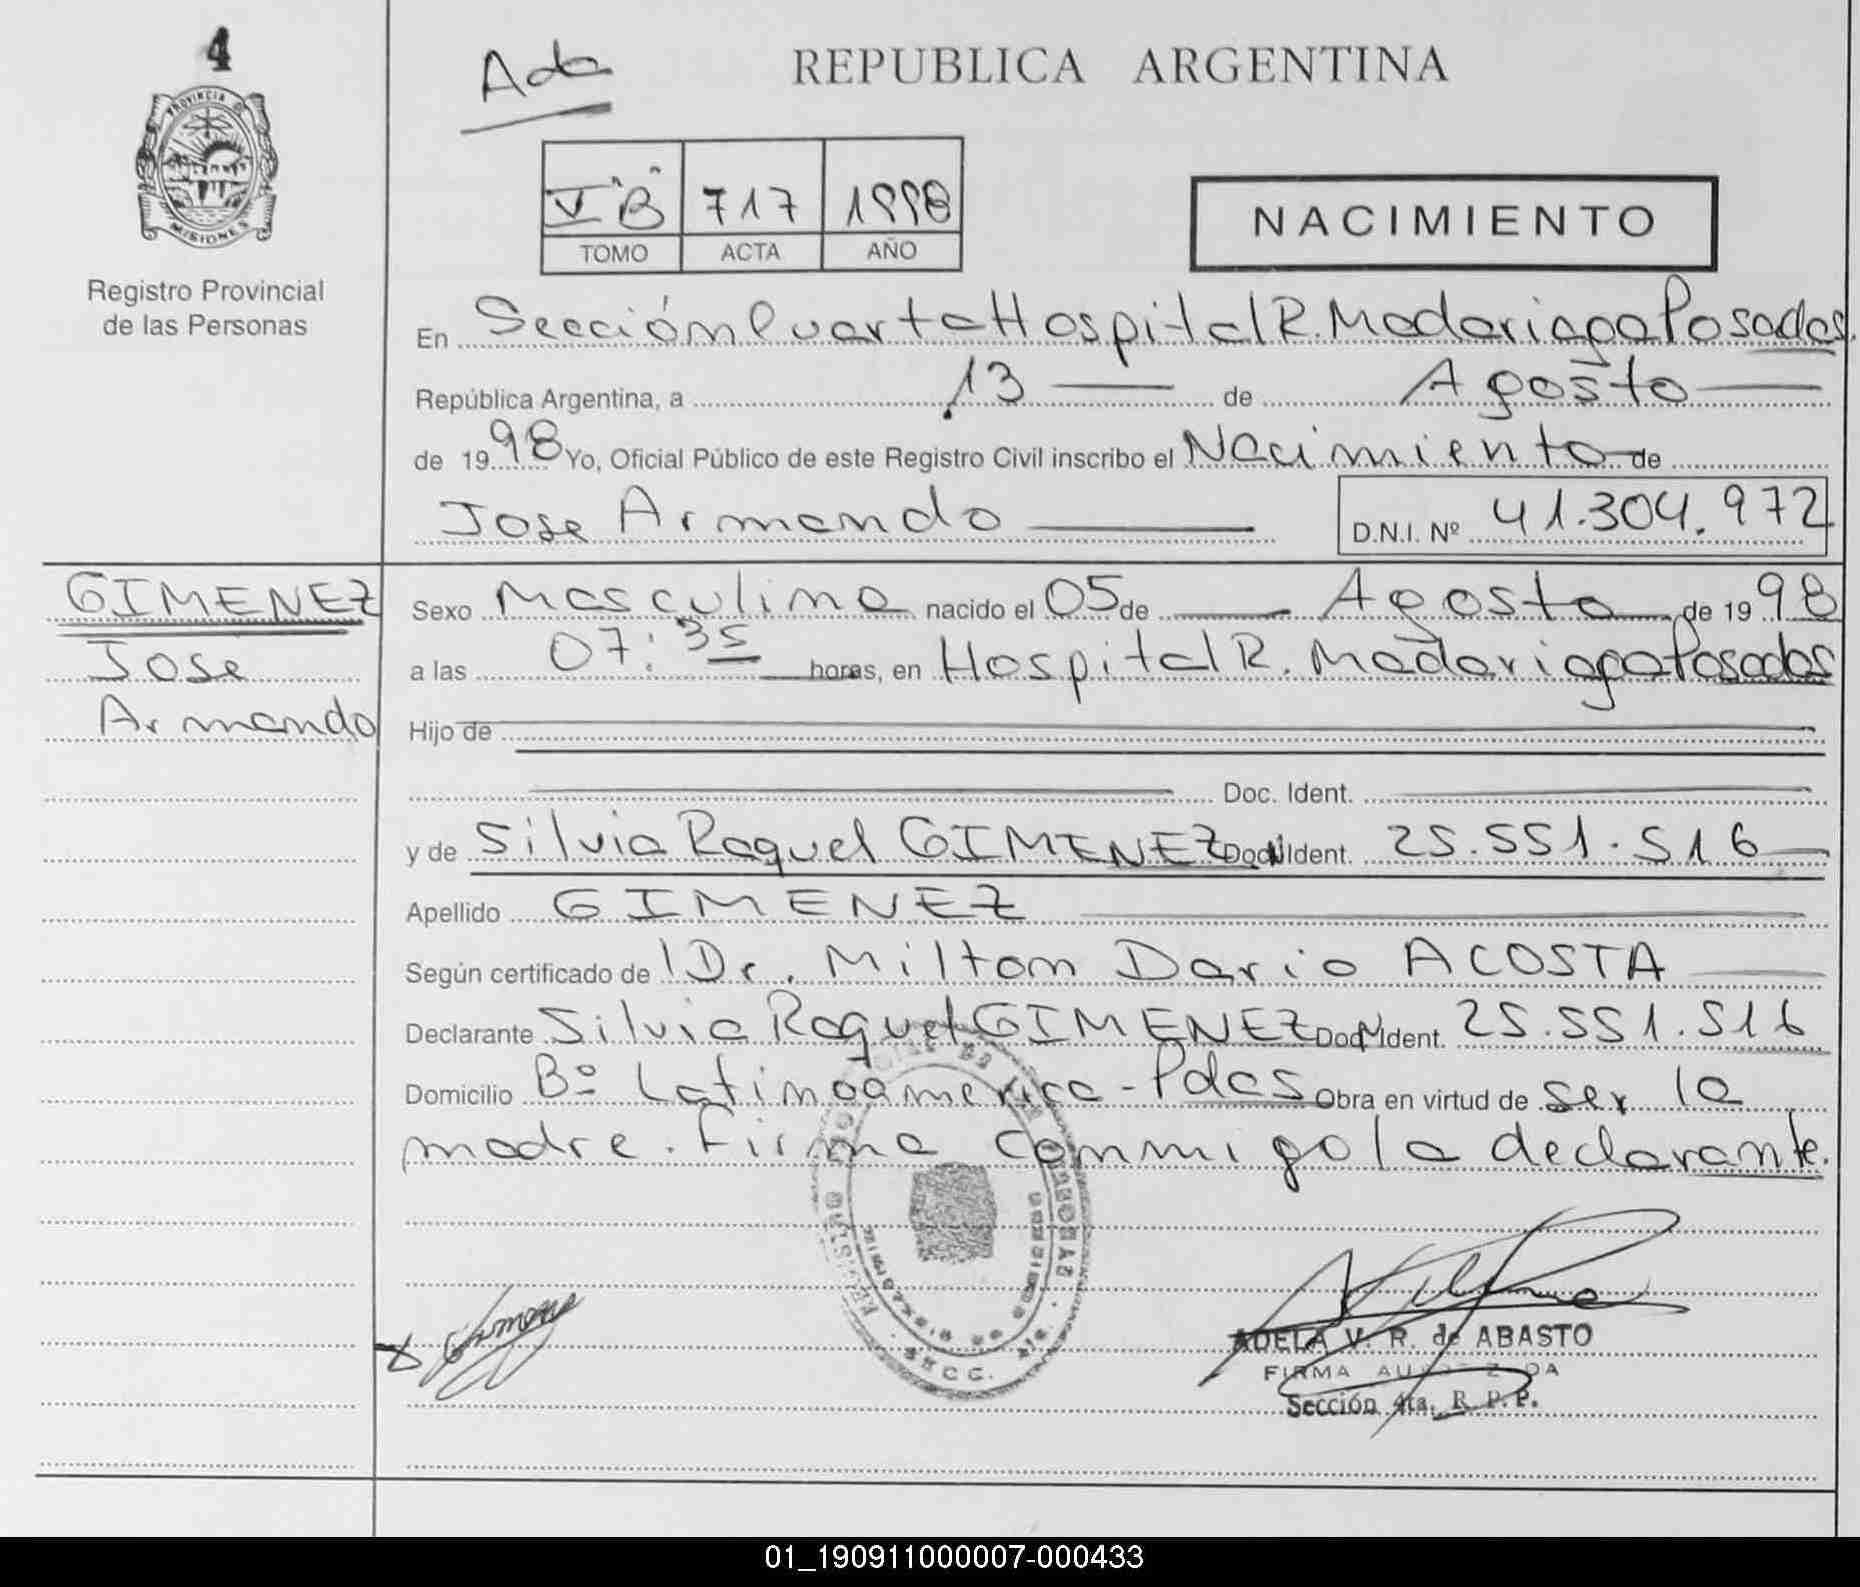 4
PROVINCIA DE
MISIONES
Registro Provincial
de las Personas
Ada
REPUBLICA ARGENTINA
V "B" 717 1998
TOMO ACTA AÑO
NACIMIENTO
En Sección Cuarta Hospital R. Madariaga Posadas.
República Argentina, a 13 de Agosto
de 1998 Yo, Oficial Público de este Registro Civil inscribo el Nacimiento de
Jose Armando D.N.I. Nº 41.304.972
GIMENEZ
Jose
Armando
Sexo Masculino nacido el 05 de Agosto de 1998
a las 07:35 horas, en Hospital R. Madariaga Posadas
Hijo de
Doc. Ident.
y de Silvia Raquel GIMENEZ Doc. Ident. 25.551.516
Apellido GIMENEZ
Según certificado de l Dr. Milton Dario ACOSTA
Declarante Silvia Raquel GIMENEZ Doc. Ident. 25.551.516
Domicilio Bº Latinoamerica - Pdas Obra en virtud de ser la
madre. Firma conmigo la declarante.
ADELA V. R. de ABASTO
FIRMA AUTORIZADA
Sección 4ta. R. P. P.
SECC. 4ta.
01_190911000007-000433